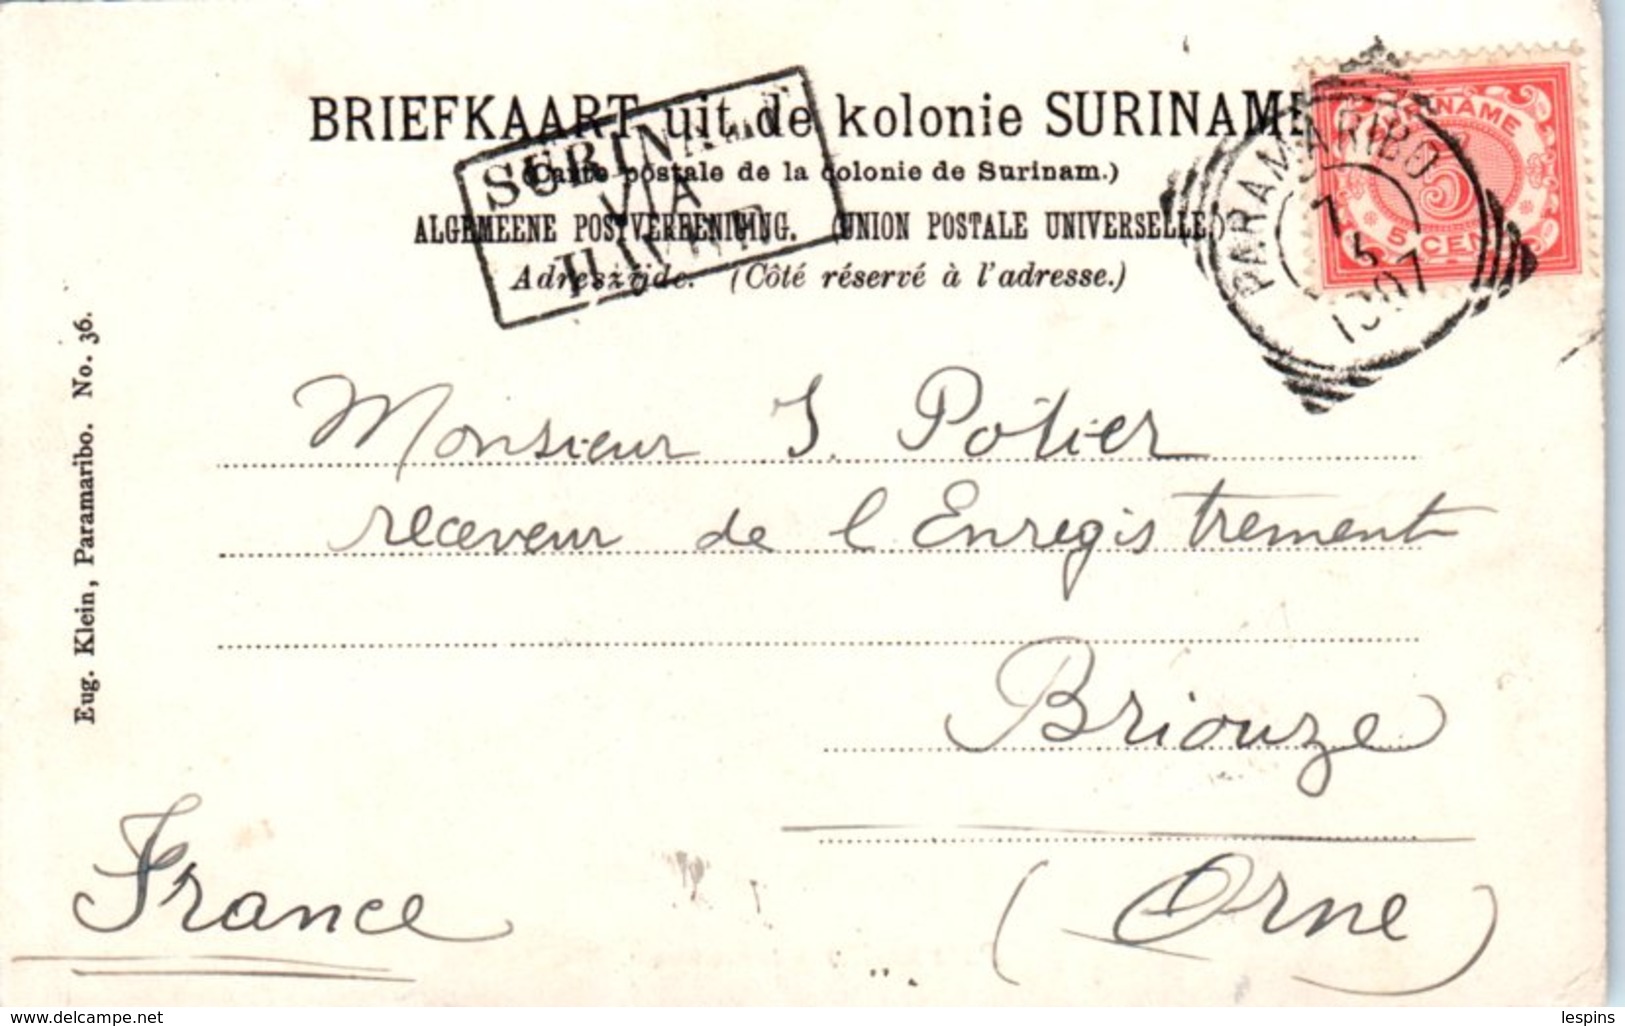 BRIEFKAART uit de kolonie SURINAME
(Carte postale de la colonie de Surinam.)
ALGEMEENE POSTVEREENIGING. (UNION POSTALE UNIVERSELLE)
Adreszijde. (Côté réservé à l'adresse.)
VIA
SURINAME
5
5 CENT
PARAMARIBO
7
5
1907
Eug. Klein, Paramaribo. No. 36.
Monsieur J. Potier
receveur de l'Enregistrement
Briouze
(Orne)
France
www.delcampe.net
lespins